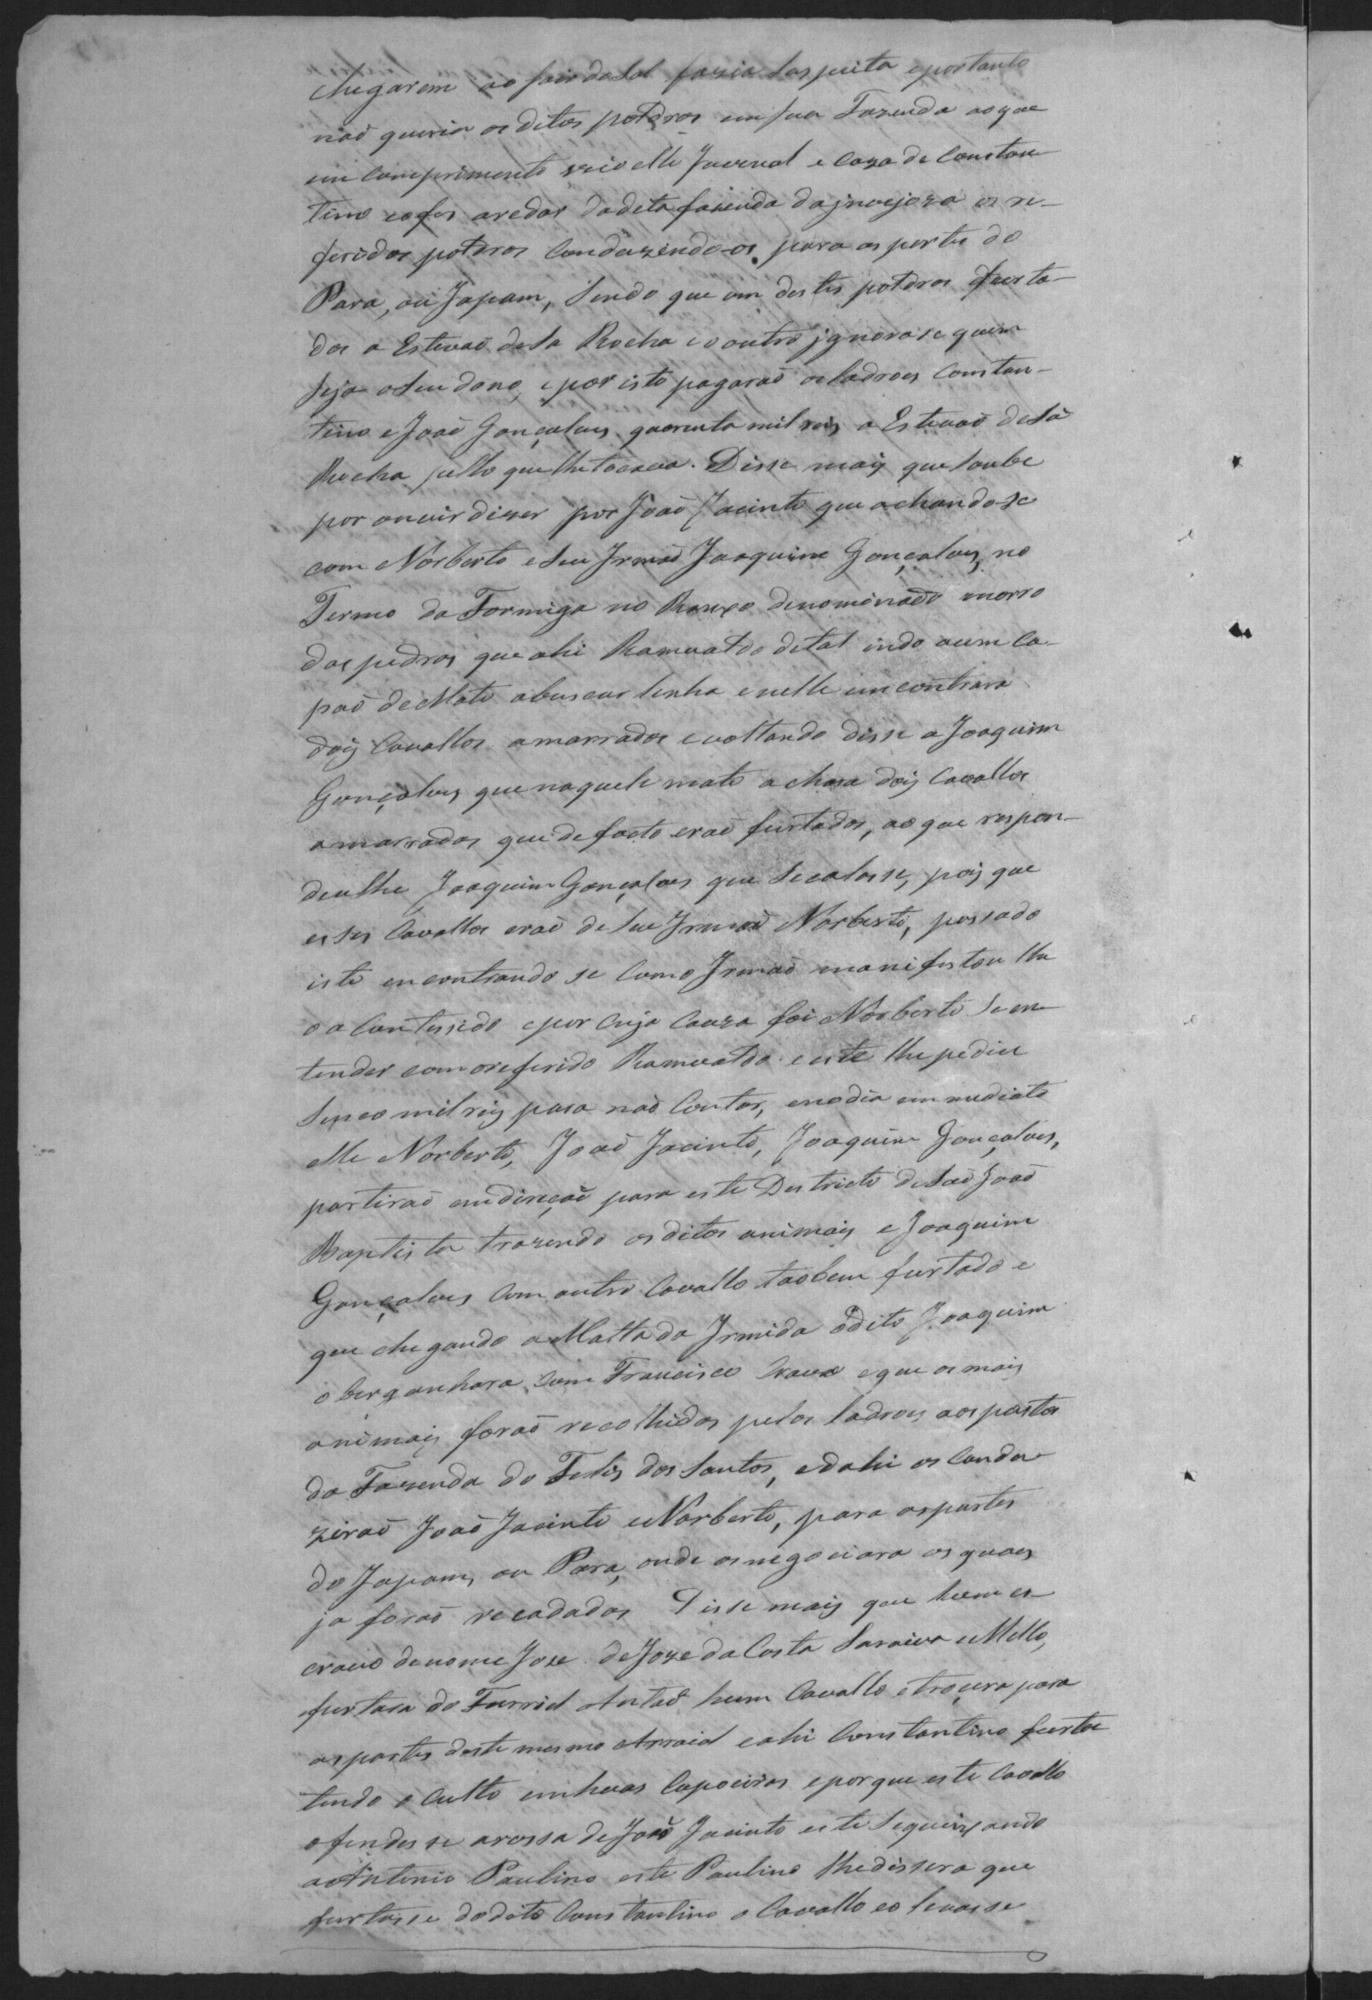 chegarem ao sair do Sol fazia Suspeita eportanto
não queria os ditos potdros em sua Fazenda aoque
em comprimento veio elle Juvenal e caza de Constan
tino eofes arredar dadeta fazenda da jnvejoza os re-
feridos potdros Conduzindo-os para as partes do
Para, ou Japam, Sendo que um destes potdros furta-
dos a Estevaõ deSa Rocha eooutro jgnorase quem
Seja oSeu dono, epor isto pagaraõ osladroes Constan-
tino e Joaõ Gonçalves quarenta mil reis a Estevaõ deSá
Rocha pello que lhe tocava. Disse mais que soube
por ouvir dizer por Joaõ Jacinto que achandose
com Norberto eSeu Jrmaõ Joaquim Gonçalves, no
Termo da Formiga no Ranxo denominado morro
das pedras que ahi Ramualdo detal indo aum Ca-
paõ deMato abuscar lenha enelle emcontrara
dois Cavallos amarrados evoltando disse a Joaquim
Gonçalves que naquele mato achara dois Cavallos
amarrados que de facto eraõ furtados, ao que respon-
deulhe Joaquim Gonçalves que Secalasse, pois que
esses Cavallos eraõ deSeu Jrmaõ Norberto, passado
isto encontrando se Como Jrmaõ manifestou lhe
o a Contessido epor cuja Cauza foi Norberto Seen
tender com oreferido Ramualdo eeste lhe pediu
Sinco mil reis para naõ Contar, enodia immediato
elle Norberto, Joaõ Jacinto, Joaquim Gonçalves,
partiraõ emdireçaõ para este Destricto deSaõ Joaõ
Baptista trazendo osditos animais e Joaquim
Gonçalves Com outro Cavallo taobem furtado e
que chegando aMatta da Jrmida odito Joaquim
o berganhara com Francisco eque os mais
animais foraõ recolhidos pelos ladroes aos pastos
da Fazenda do Felis dos Santos, edahi os Condu
ziraõ Joaõ Jacinto eNorberto, para aspartes
do Japam, ou Para, onde osnegociara os quaes
ja foraõ recadados Disse mais que hum es
cravo denome Joze deJoze daCosta Saraiva eMello,
furtara do Furriel Antaõ hum Cavallo etroçera para
aspartes deste mesmo Arraial eahi Constantino furta
tendo o Culto emhuas Capoeiras eporque este Cavallo
ofendesse arossa deJoaõ Jacinto este Sequeixando
aoAntonio Paulino este Paulino lhedissera que
furtasse dodito Constantino o Cavallo eo levasse